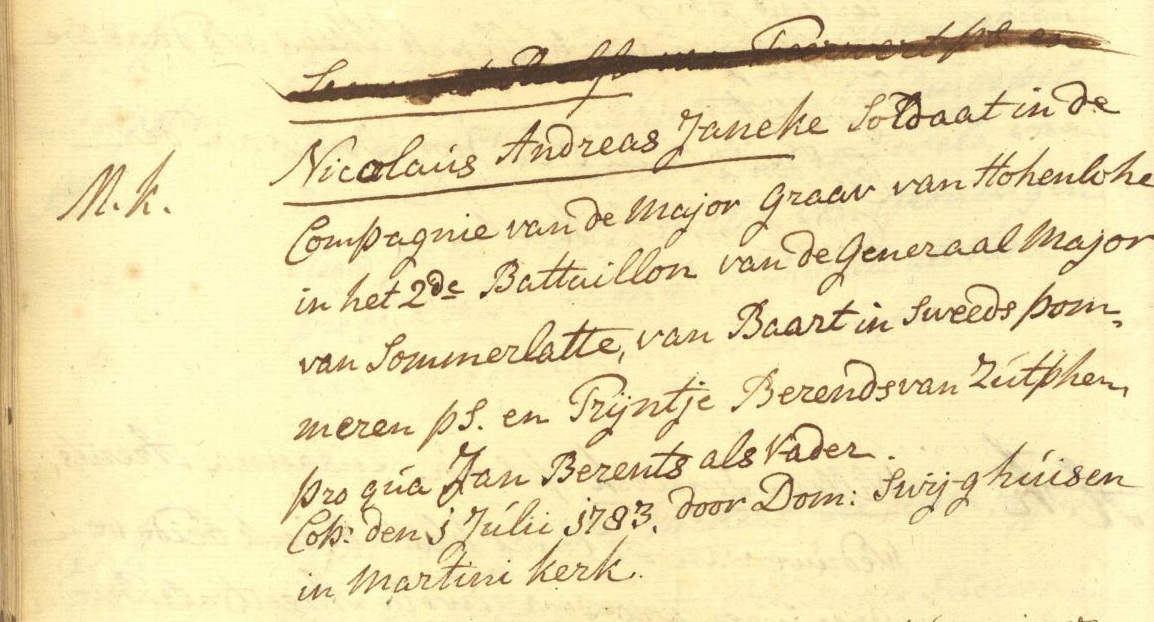 Nicolaus Andreas Janeke Soldaat in de
M. k.
Compagnie van de Major Graav van Hohenlohe
in het 2de Battaillon van de Generaal Major
van Sommerlatte, van Baart in Sweeds pom,
meren ps. en Trijntje Berends van Zútphen,
pro qúa Jan Berents als Vader.
Cop: den 1 Júlii 1783. door Dom: Swijghúisen
in Martini kerk.